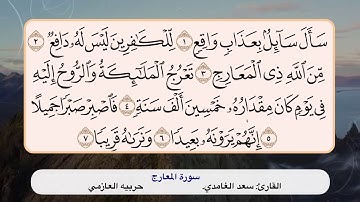 سَأَلَ سَآئِلٌۢ بِعَذَابٖ وَاقِعٖ ١ لِّلۡكَٰفِرِينَ لَيۡسَ لَهُۥ دَافِعٞ ٢
مِّنَ ٱللَّهِ ذِي ٱلۡمَعَارِجِ ٣ تَعۡرُجُ ٱلۡمَلَٰٓئِكَةُ وَٱلرُّوحُ إِلَيۡهِ
فِي يَوۡمٖ كَانَ مِقۡدَارُهُۥ خَمۡسِينَ أَلۡفَ سَنَةٖ ٤ فَٱصۡبِرۡ صَبۡرٗا جَمِيلًا
٥ إِنَّهُمۡ يَرَوۡنَهُۥ بَعِيدٗا ٦ وَنَرَىٰهُ قَرِيبٗا ٧
سورة المعارج
القارئ: سعد الغامدي. حربيه العازمي